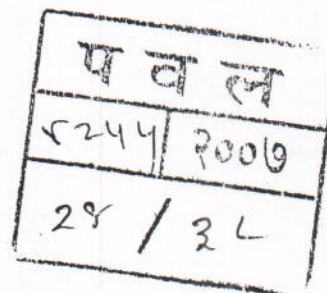 प व ल
४२५५ २००७
२४ / ३८